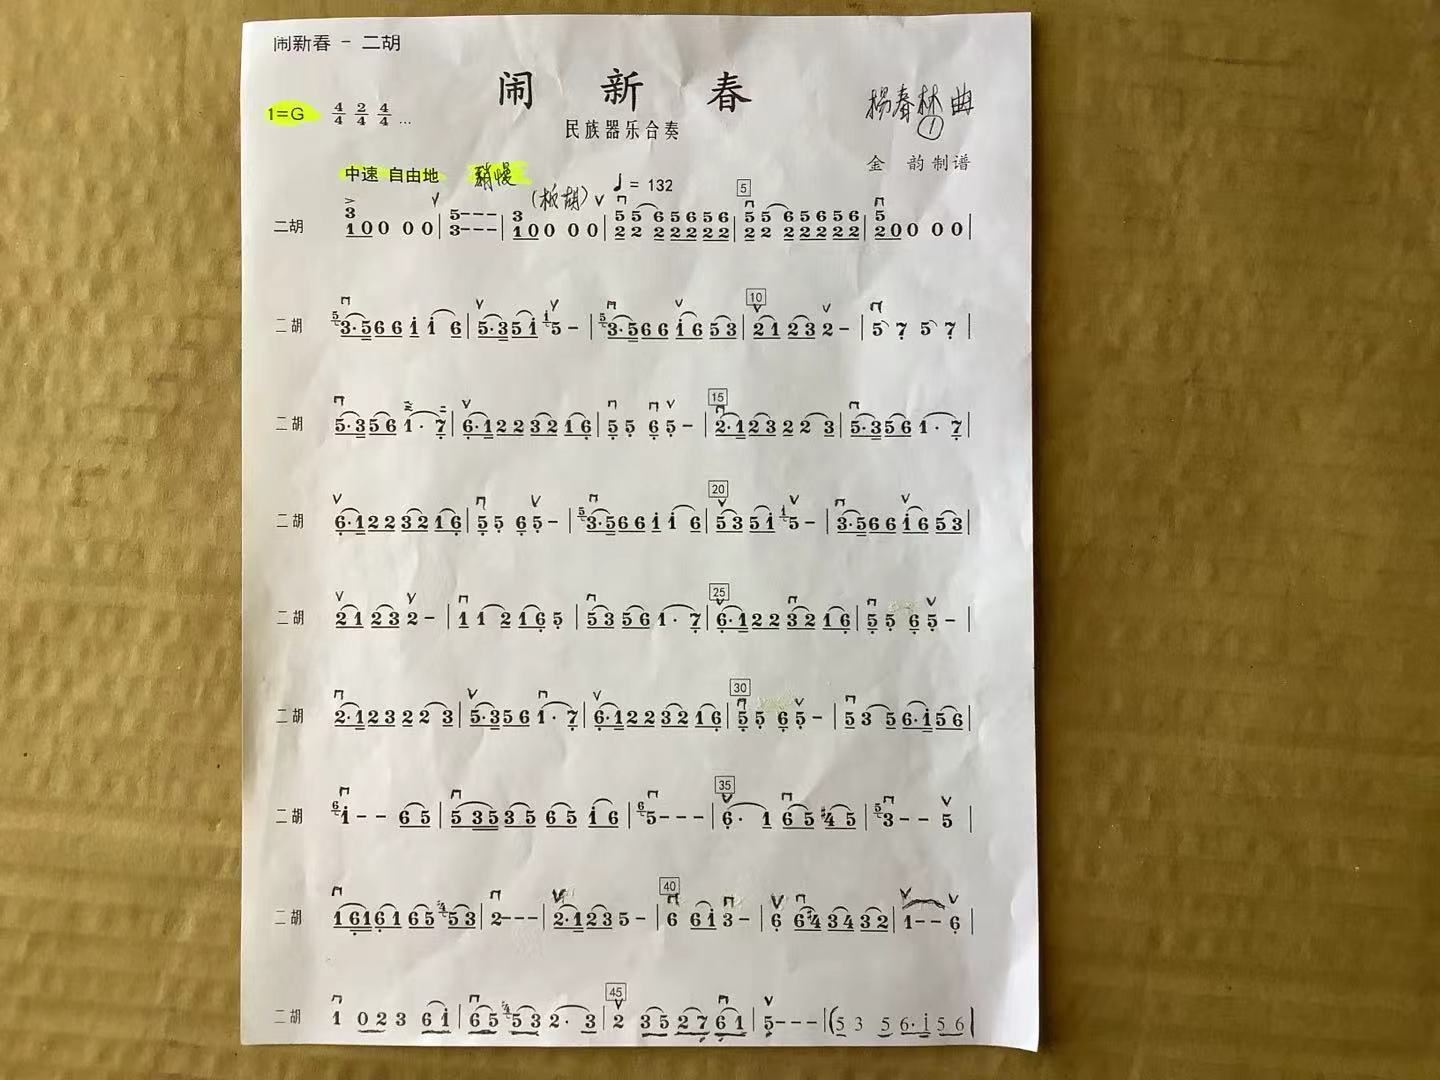 闹新春 - 二胡
闹 新 春
1=G 4/4 2/4 4/4 ...
民族器乐合奏
杨春林 曲
①
金 韵 制谱
中速 自由地 稍慢
(板胡) ♩= 132
5
二胡 3 100 00 | 5--- 3--- | 3 100 00 | 55 65656 22 22222 | 55 65656 22 22222 | 5 200 00 |
10
二胡 5 3·566 i i 6 | 5·35i i 5- | 5 3·566 i653 | 2123 2- | 5 7 5 7 |
15
二胡 5·356 1· 7 | 6·122 3216 | 55 65- | 2·123 22 3 | 5·356 1· 7 |
20
二胡 6·122 3216 | 55 65- | 5 3·566 i i 6 | 535i i 5- | 3·566 i653 |
25
二胡 2123 2- | 11 2165 | 5356 1·7 | 6·122 3216 | 55 65- |
30
二胡 2·123 22 3 | 5·356 1·7 | 6·122 3216 | 55 65- | 53 5 6·i56 |
35
二胡 6 i-- 65 | 53535 65 i6 | 6 5--- | 6· 1 65 #45 | 5 3-- 5 |
40
二胡 16161 65 #4 53 | 2--- | 2·123 5- | 6 6i 3- | 6 6#4 34 32 | 1-- 6 |
45
二胡 1 023 6i | 65 #4 53 2· 3 | 2 35 27 61 | 5--- | (53 5 6·i56 |